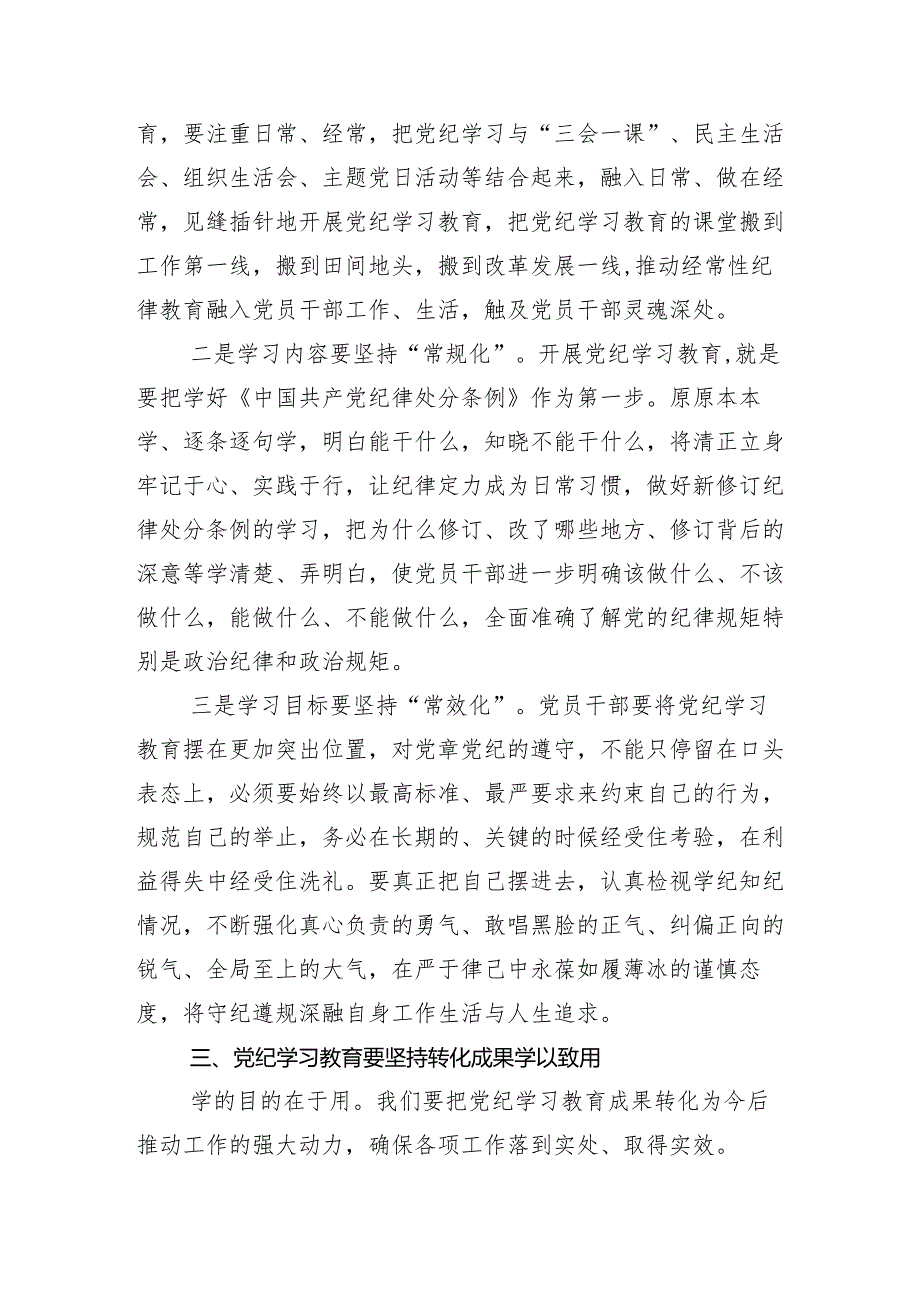 育，要注重日常、经常，把党纪学习与“三会一课”、民主生活
会、组织生活会、主题党日活动等结合起来，融入日常、做在经
常，见缝插针地开展党纪学习教育，把党纪学习教育的课堂搬到
工作第一线，搬到田间地头，搬到改革发展一线,推动经常性纪
律教育融入党员干部工作、生活，触及党员干部灵魂深处。
二是学习内容要坚持“常规化”。开展党纪学习教育,就是
要把学好《中国共产党纪律处分条例》作为第一步。原原本本
学、逐条逐句学，明白能干什么，知晓不能干什么，将清正立身
牢记于心、实践于行，让纪律定力成为日常习惯，做好新修订纪
律处分条例的学习，把为什么修订、改了哪些地方、修订背后的
深意等学清楚、弄明白，使党员干部进一步明确该做什么、不该
做什么，能做什么、不能做什么，全面准确了解党的纪律规矩特
别是政治纪律和政治规矩。
三是学习目标要坚持“常效化”。党员干部要将党纪学习
教育摆在更加突出位置，对党章党纪的遵守，不能只停留在口头
表态上，必须要始终以最高标准、最严要求来约束自己的行为，
规范自己的举止，务必在长期的、关键的时候经受住考验，在利
益得失中经受住洗礼。要真正把自己摆进去，认真检视学纪知纪
情况，不断强化真心负责的勇气、敢唱黑脸的正气、纠偏正向的
锐气、全局至上的大气，在严于律己中永葆如履薄冰的谨慎态
度，将守纪遵规深融自身工作生活与人生追求。
三、党纪学习教育要坚持转化成果学以致用
学的目的在于用。我们要把党纪学习教育成果转化为今后
推动工作的强大动力，确保各项工作落到实处、取得实效。